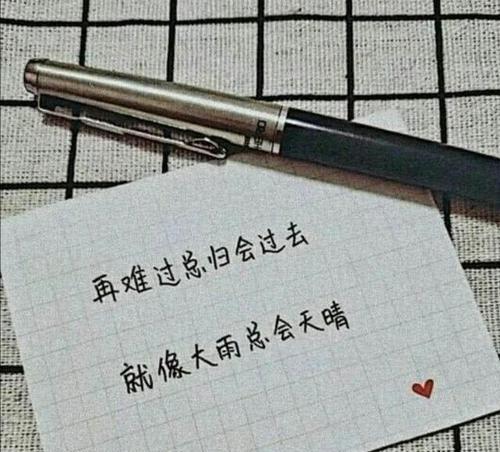 再难过总归会过去
就像大雨总会天晴